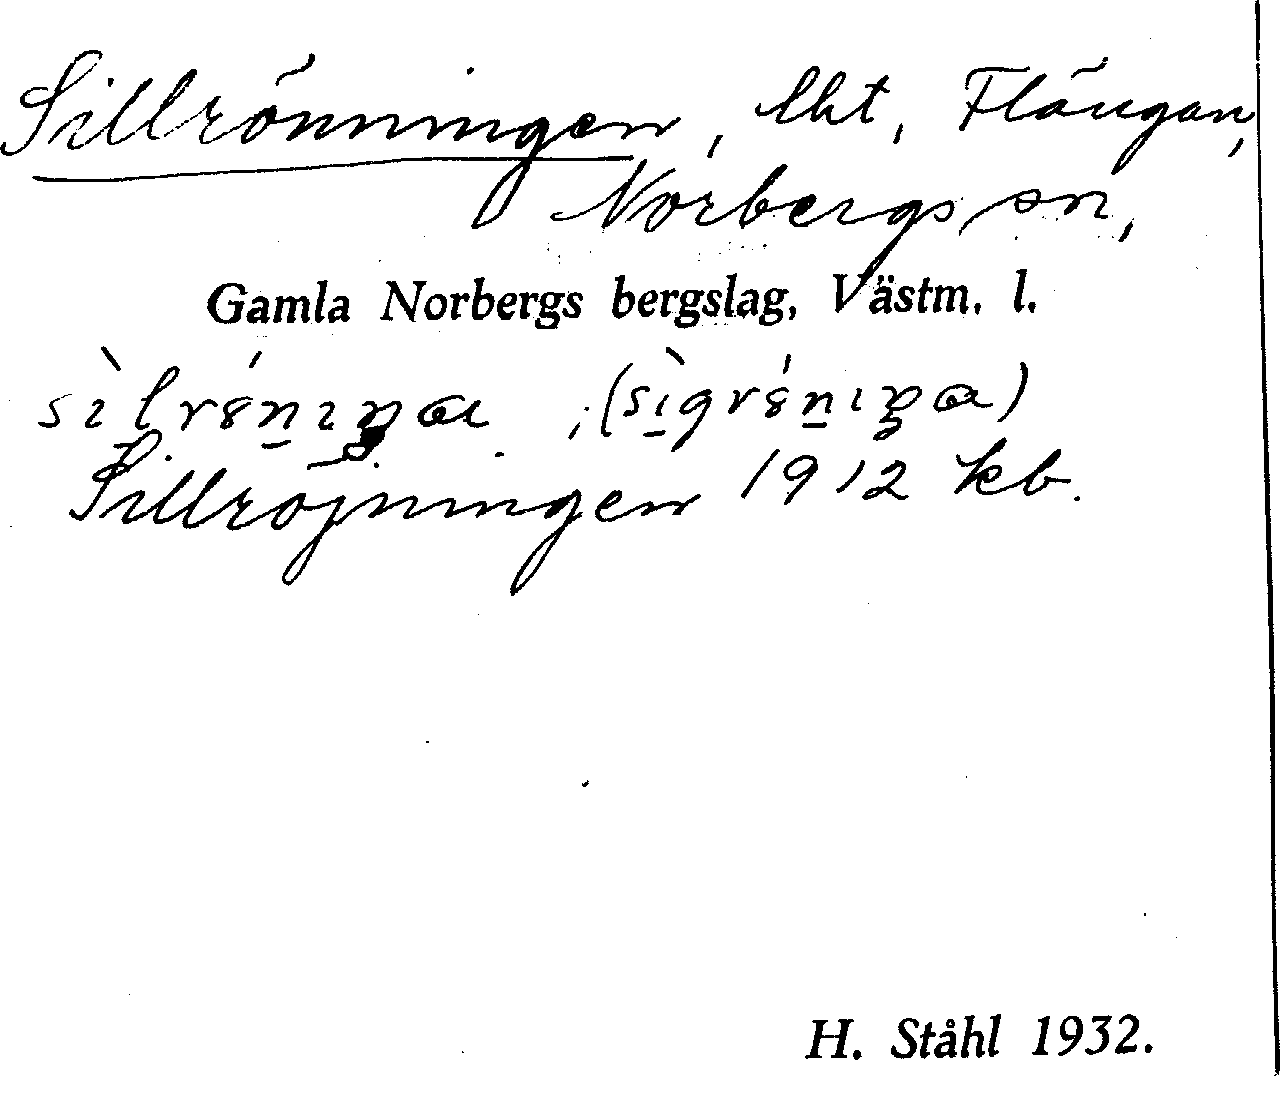 Sillrönningen, lht, Flängan,
Norbergs sn,
Gamla Norbergs bergslag, Västm. l.
Sillröjningen 1912 kb.
H. Ståhl 1932.